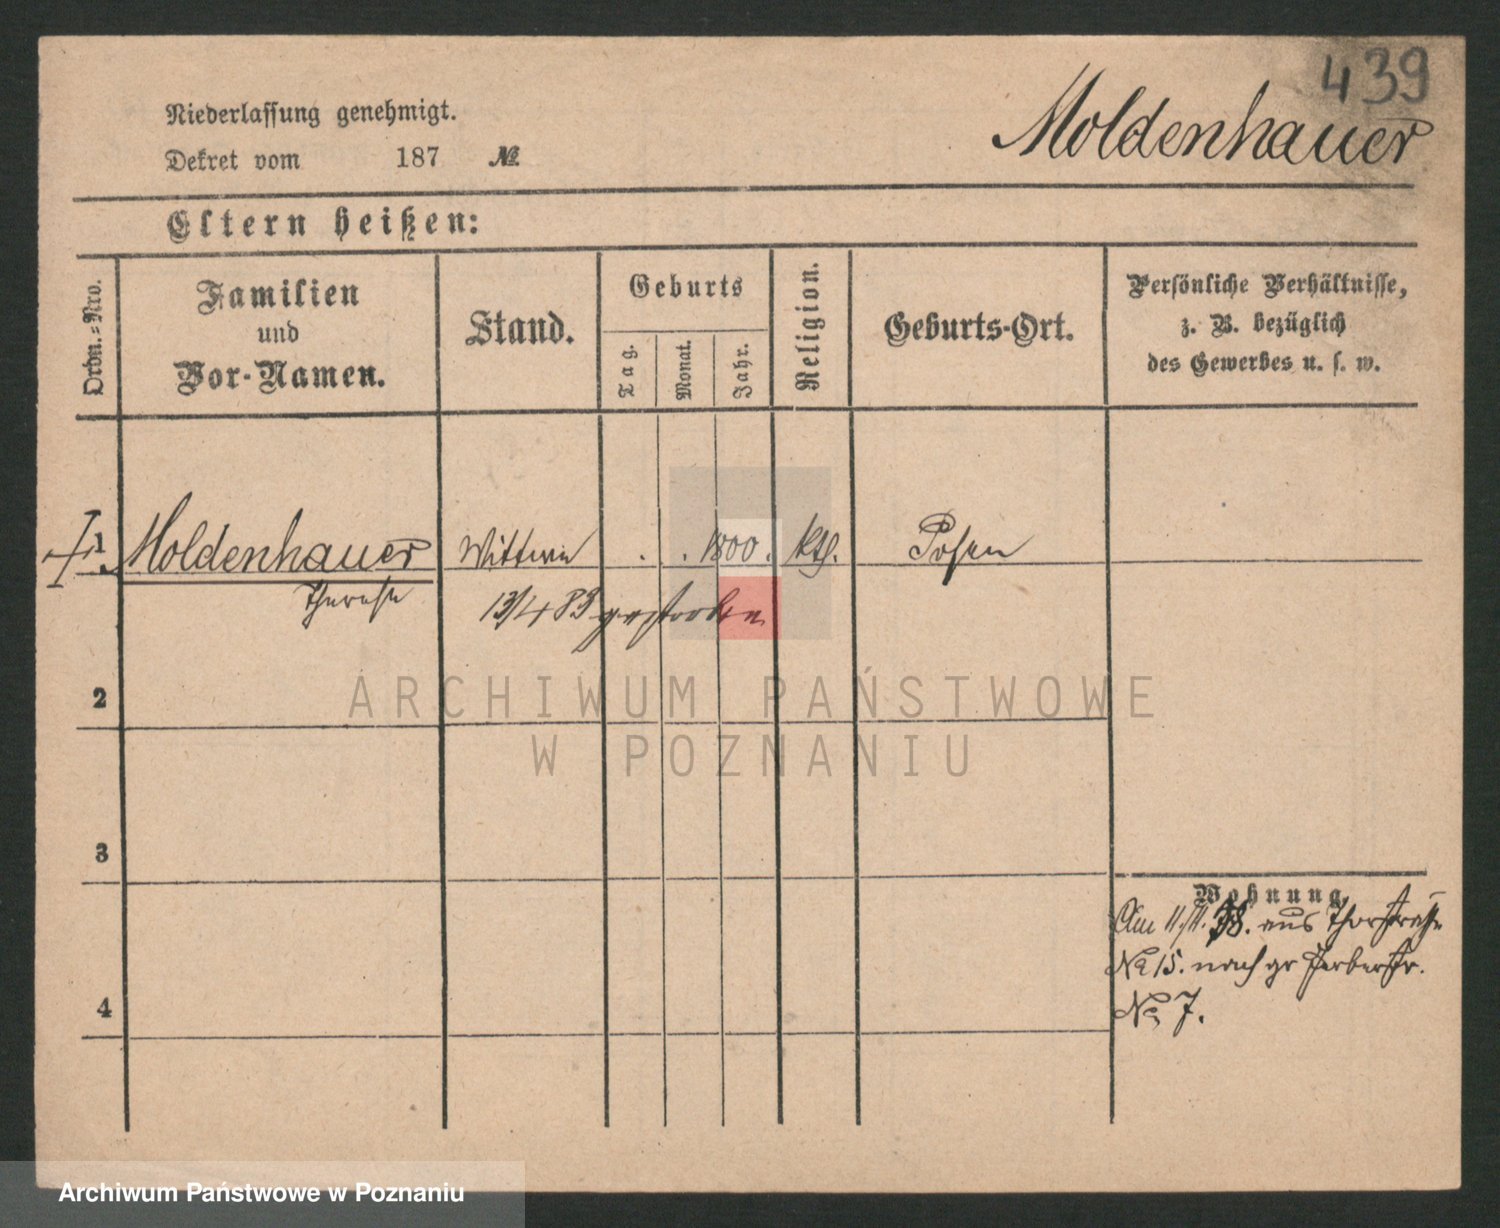 439
Moldenhauer
Niederlassung genehmigt.
Dekret vom 187 №
Eltern heißen:
Ordn.-Nro.
Familien
und
Vor-Namen.
Stand.
Geburts
Tag.
Monat.
Jahr.
Religion.
Geburts-Ort.
Persönliche Verhältnisse,
z. B. bezüglich
des Gewerbes u. s. w.
1 Moldenhauer Wittwe . . 1800. kth. Posen
Therese 13/4 83 gestorben
2
3
4
Wohnung.
Am 11./11. 78. aus Thorstraße
No 15. nach gr Gerberstr.
No 7.
ARCHIWUM PAŃSTWOWE
W POZNANIU
Archiwum Państwowe w Poznaniu